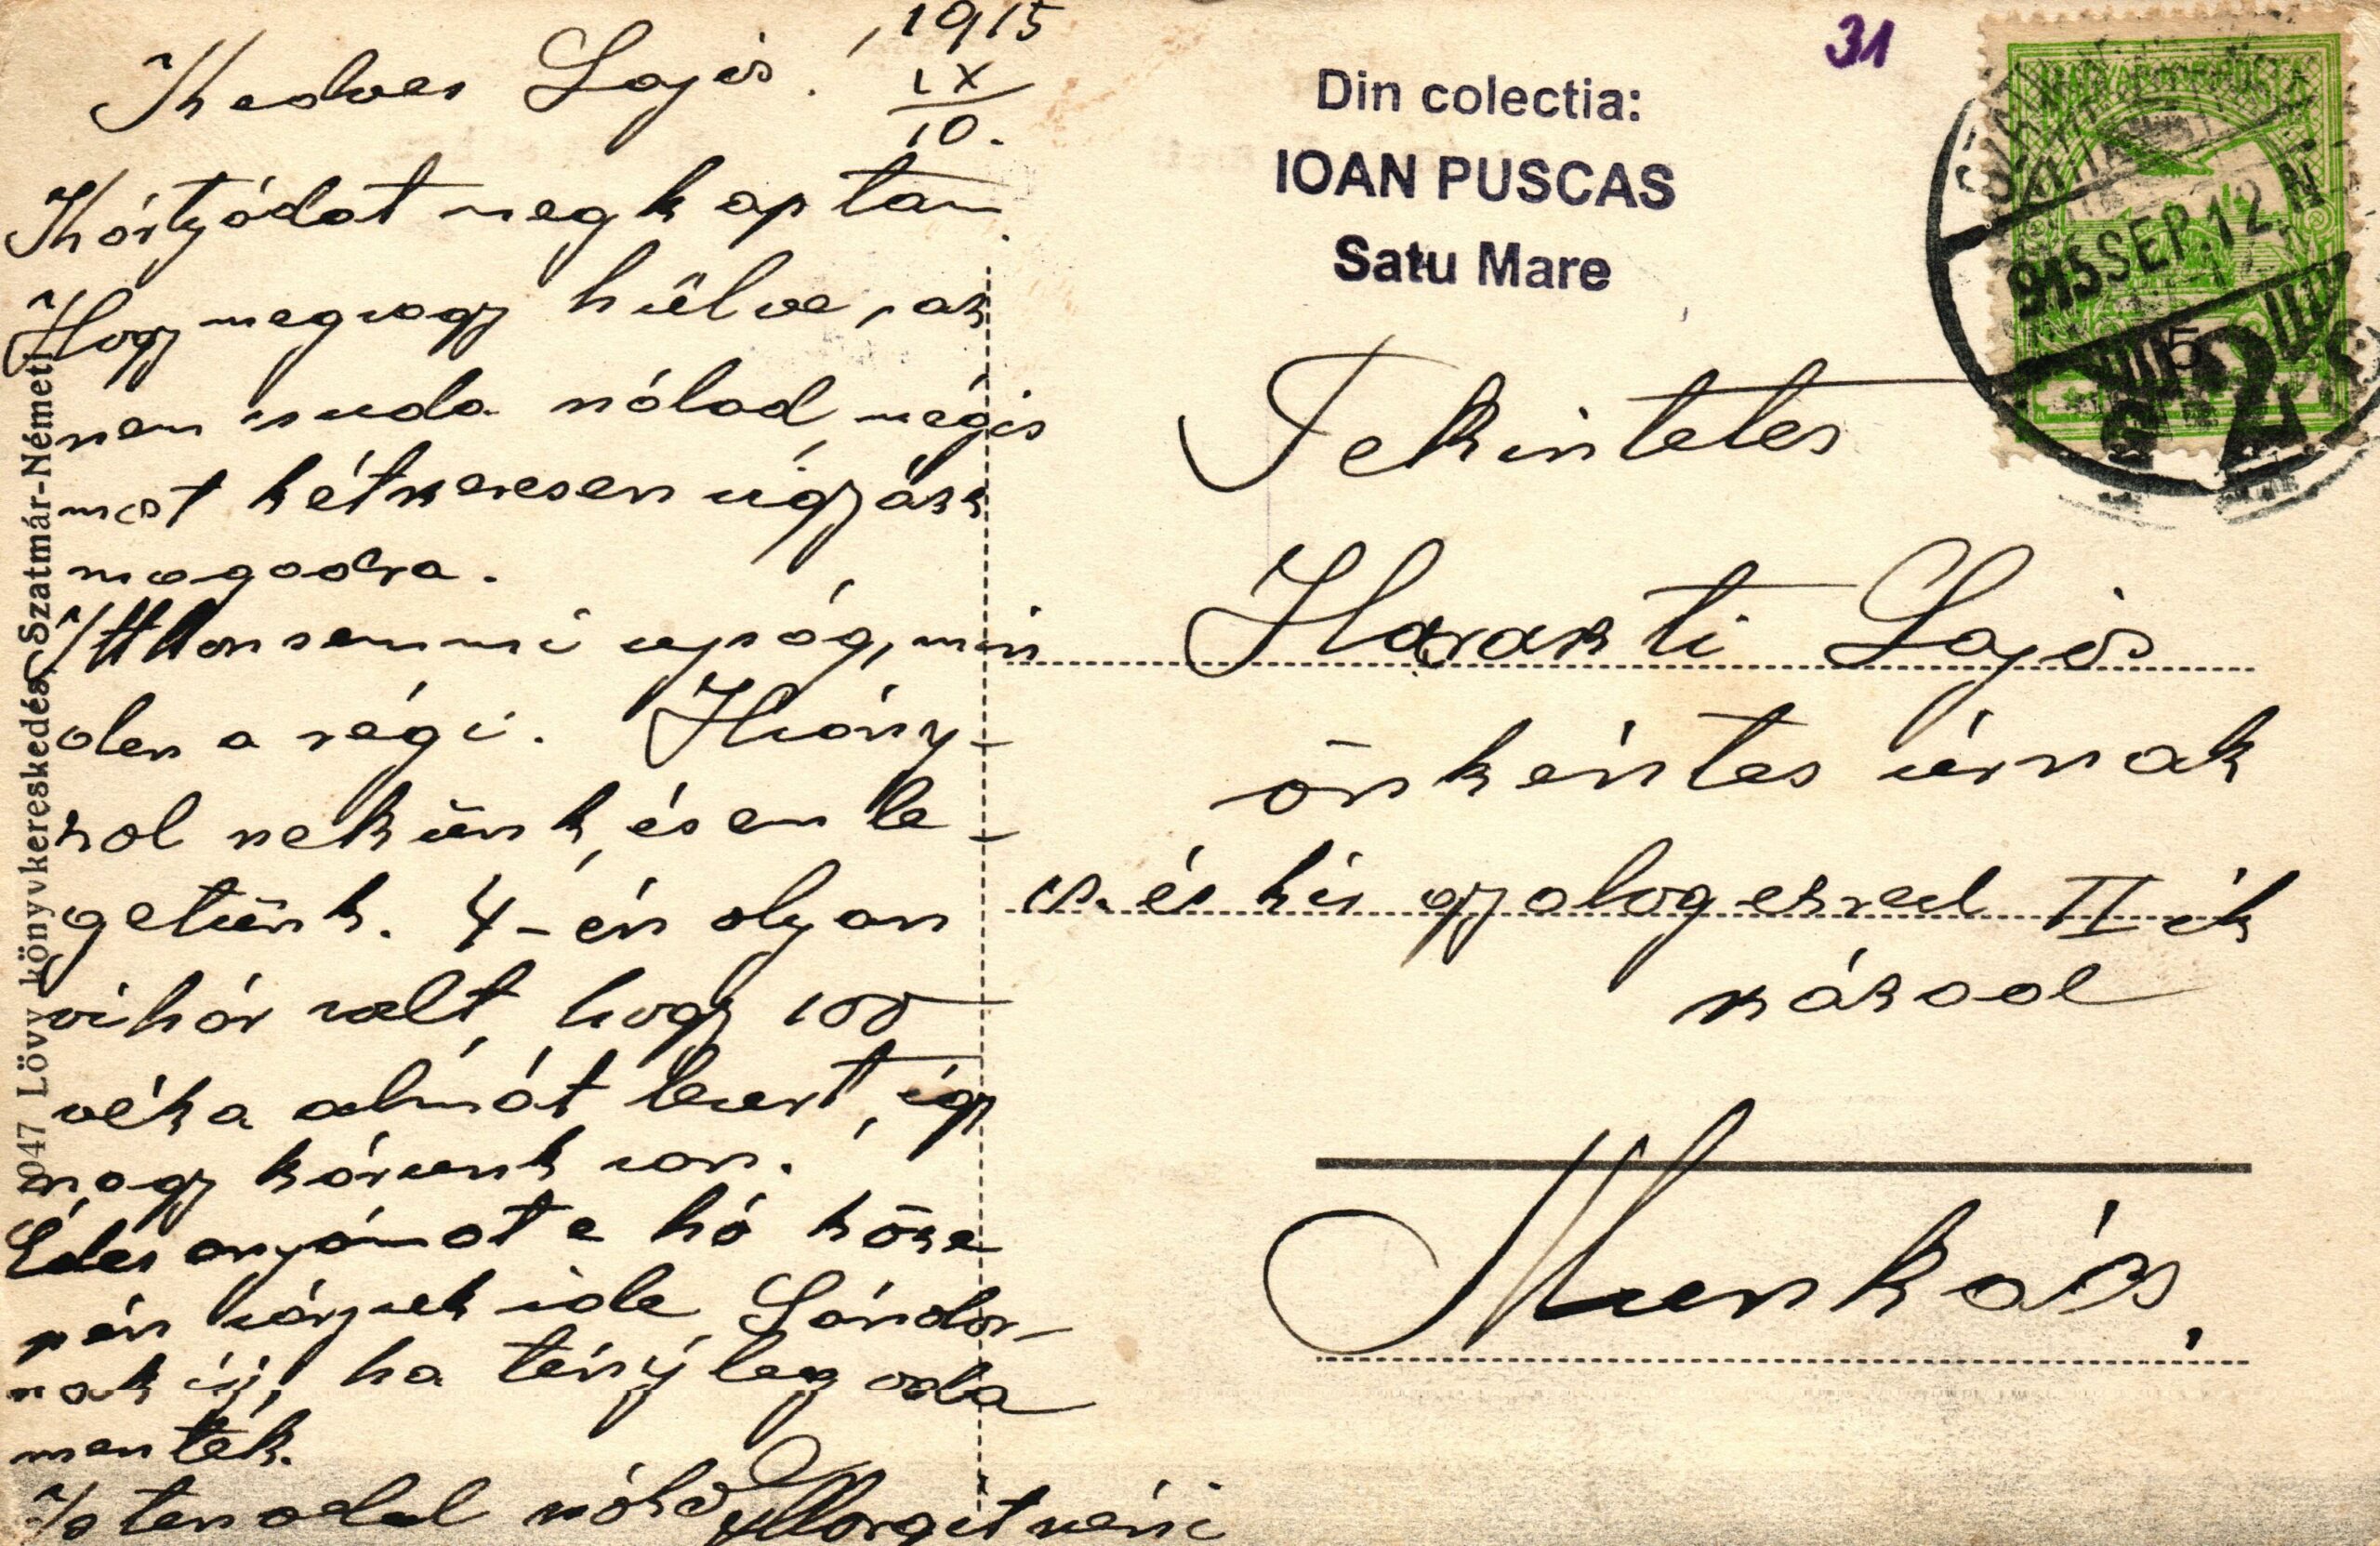 Kedves Lajos! 1915
IX
10.
Kártyádat megkaptam.
Hogy megvagy hülve, az
nem csuda nálad, mégis
most kétszeresen vigyázz
magadra.
Itthon semmi ujság, min
den a régi. Hiány-
zol nekünk, és em le-
getünk. 4-én olyan
vihar volt, hogy 100
véka almát levert, így
nagy kárunk van.
Édes anyámat e hó köze
pén várjuk ide Sándor-
nak irj, ha tényleg oda
mentek.
Istenadal Margit néni
Din colectia:
IOAN PUSCAS
Satu Mare
31
MAGYAR KIR. POSTA
915 SEP. 12. N
5
Tekintetes
Lajos
önkéntes úrnak
cs. és kir gyalogezred II ik
század
Munkács.
047 Lövy könyvkereskedés, Szatmár-Németi